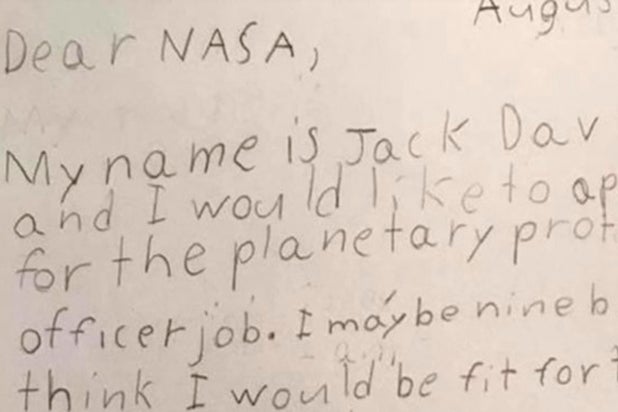 Augus
Dear NASA,
My name is Jack Dav
and I would like to ap
for the planetary prot
officer job. I may be nine b
think I would be fit for t